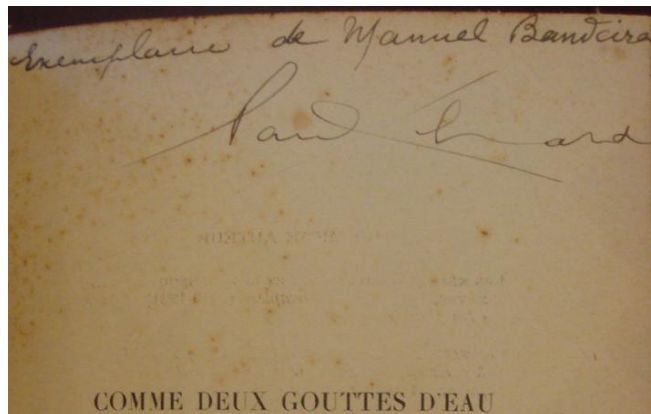 Exemplaire de Manuel Bandeira
Paul Eluard
COMME DEUX GOUTTES D'EAU